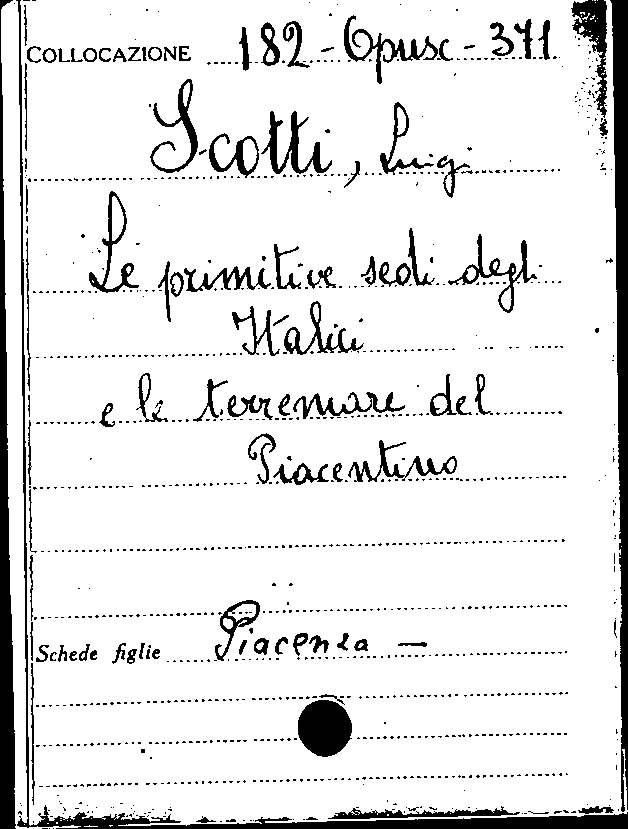 COLLOCAZIONE 182-Opusc-371
Scotti, Luigi
Le primitive sedi degli
Italici
e le terremare del
Piacentino
Schede figlie Piacenza —